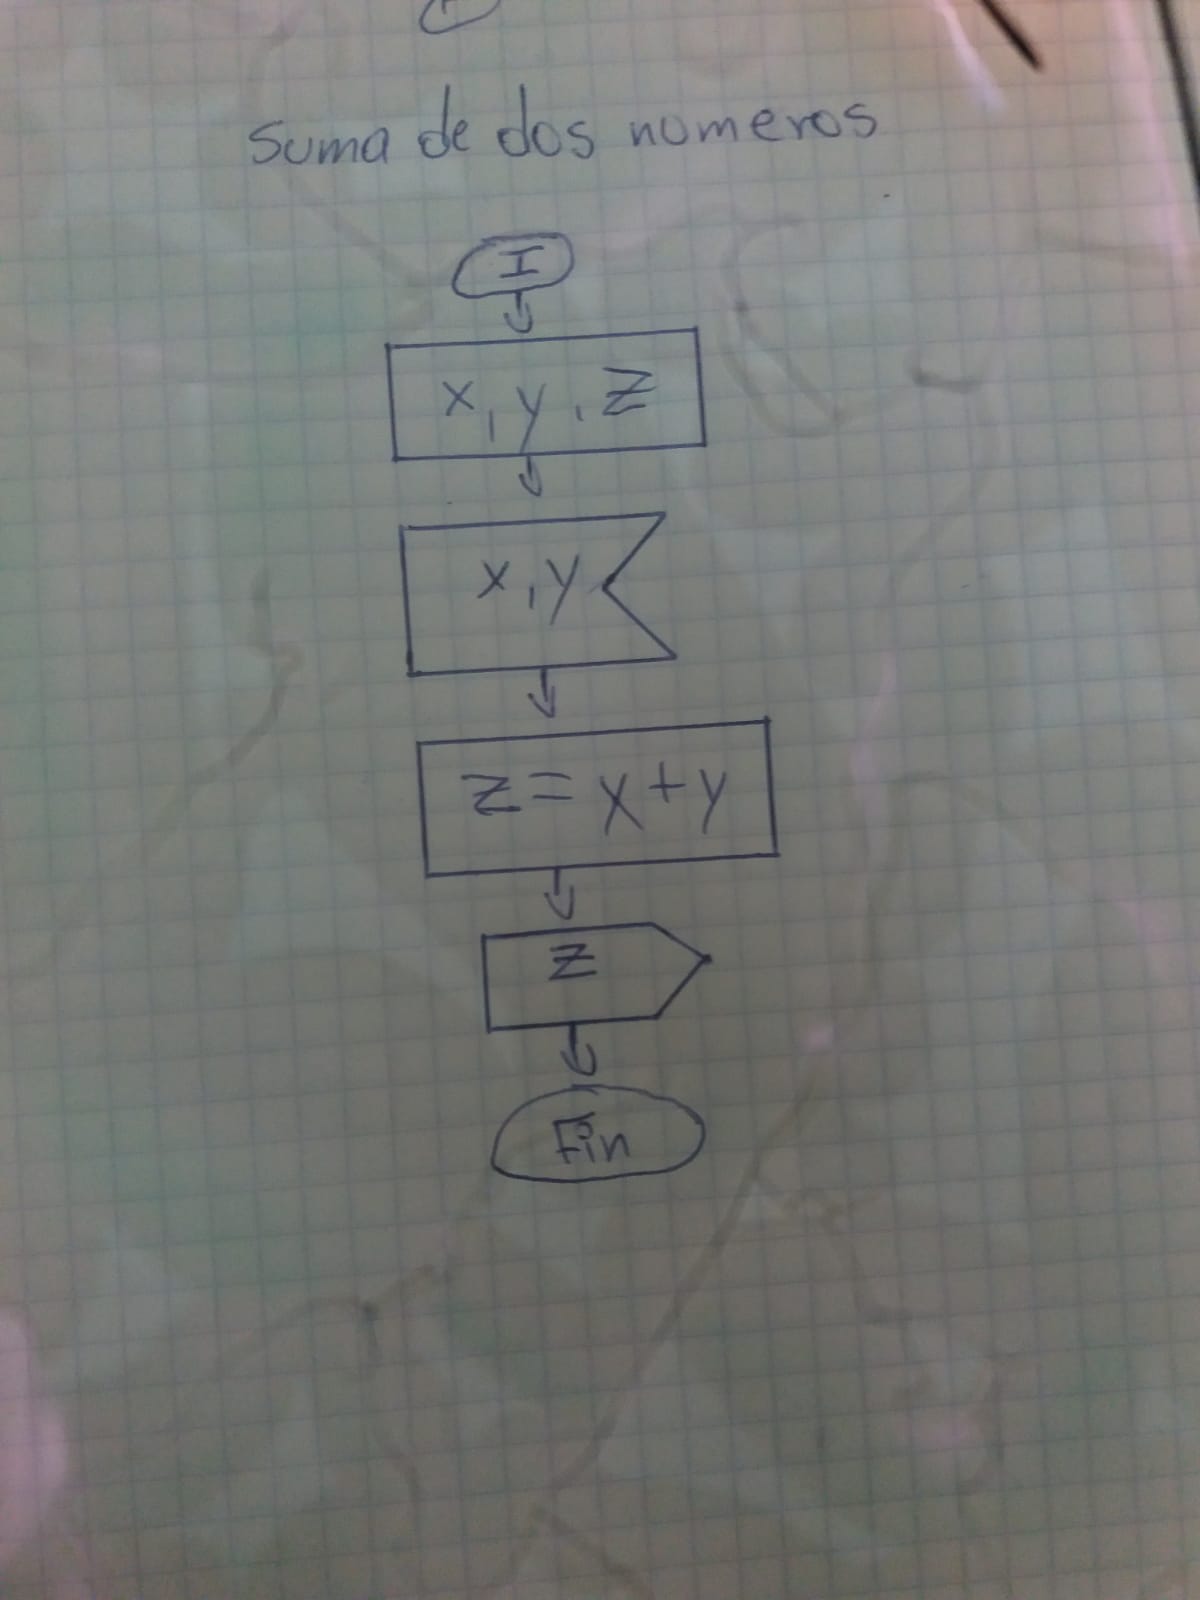 Suma de dos numeros
I
x, y, z
x, y
z = x + y
z
Fin